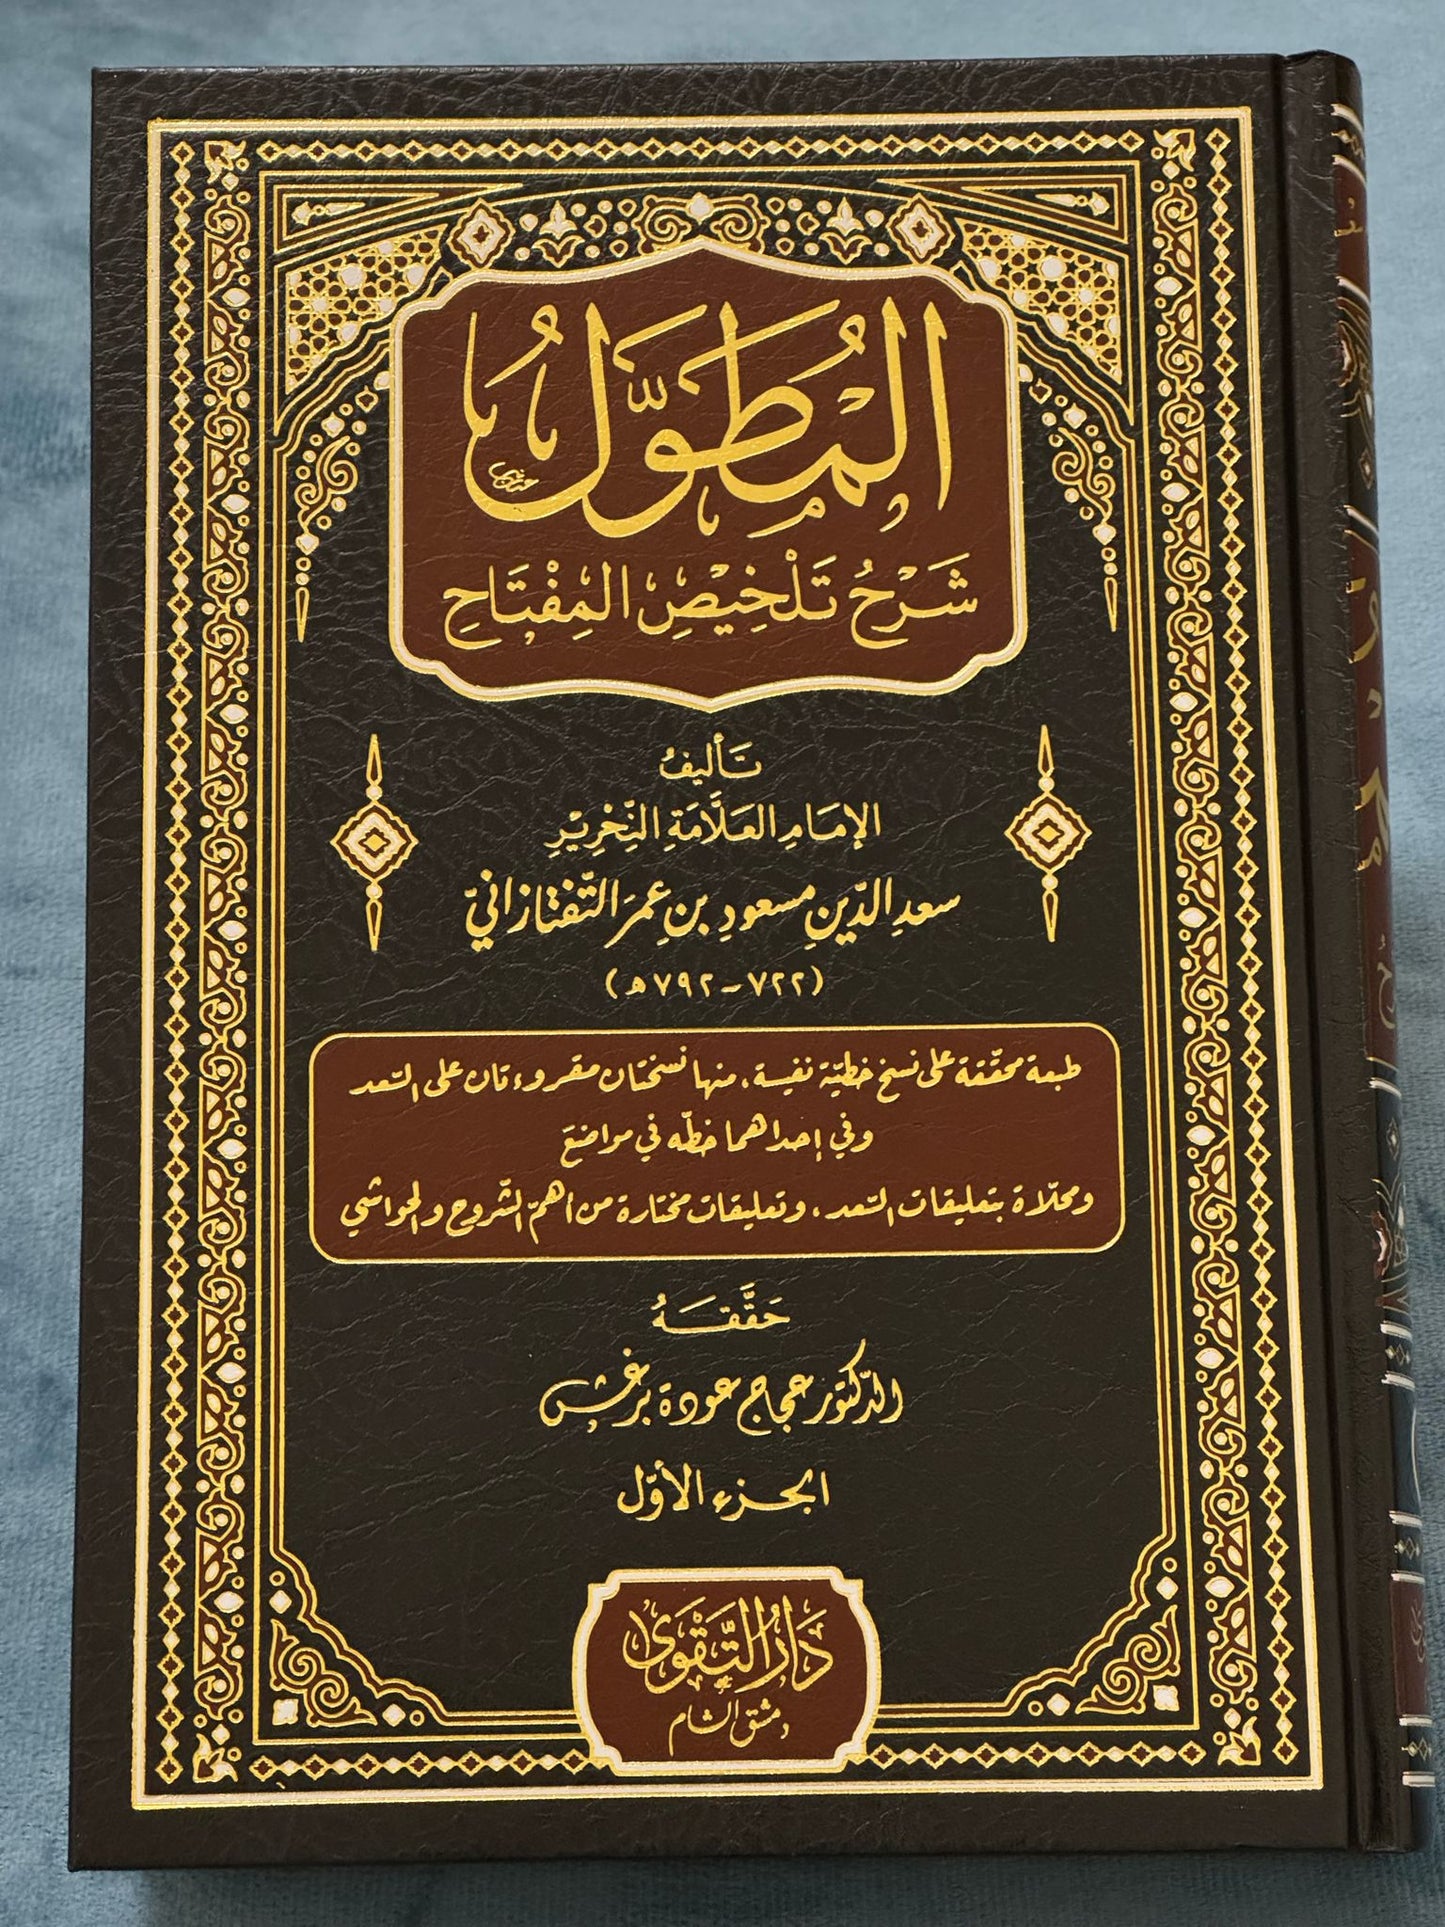 المُطَوَّلُ
شَرْحُ تَلْخِيْصِ المِفْتَاحِ
تَأليفُ
الإمَامِ العَلَّامَةِ النِّحْرِيْرِ
سعدِ الدّينِ مسعودِ بنِ عمرَ التّفتازانيّ
(٧٢٢-٧٩٢ هـ)
طبعة محقّقة على نسخ خطيّة نفيسة، منها نسختان مقروءتان على السّعد
وفي إحداهما خطّه في مواضعَ
ومحلّاة بتعليقات السّعد، وتعليقات مختارة من أهمّ الشّروح والحواشي
حَقَّقَهُ
الدّكتور عجاج عودة برغش
الجزء الأوّل
دَارُ التَّقْوَى
دمشق الشام